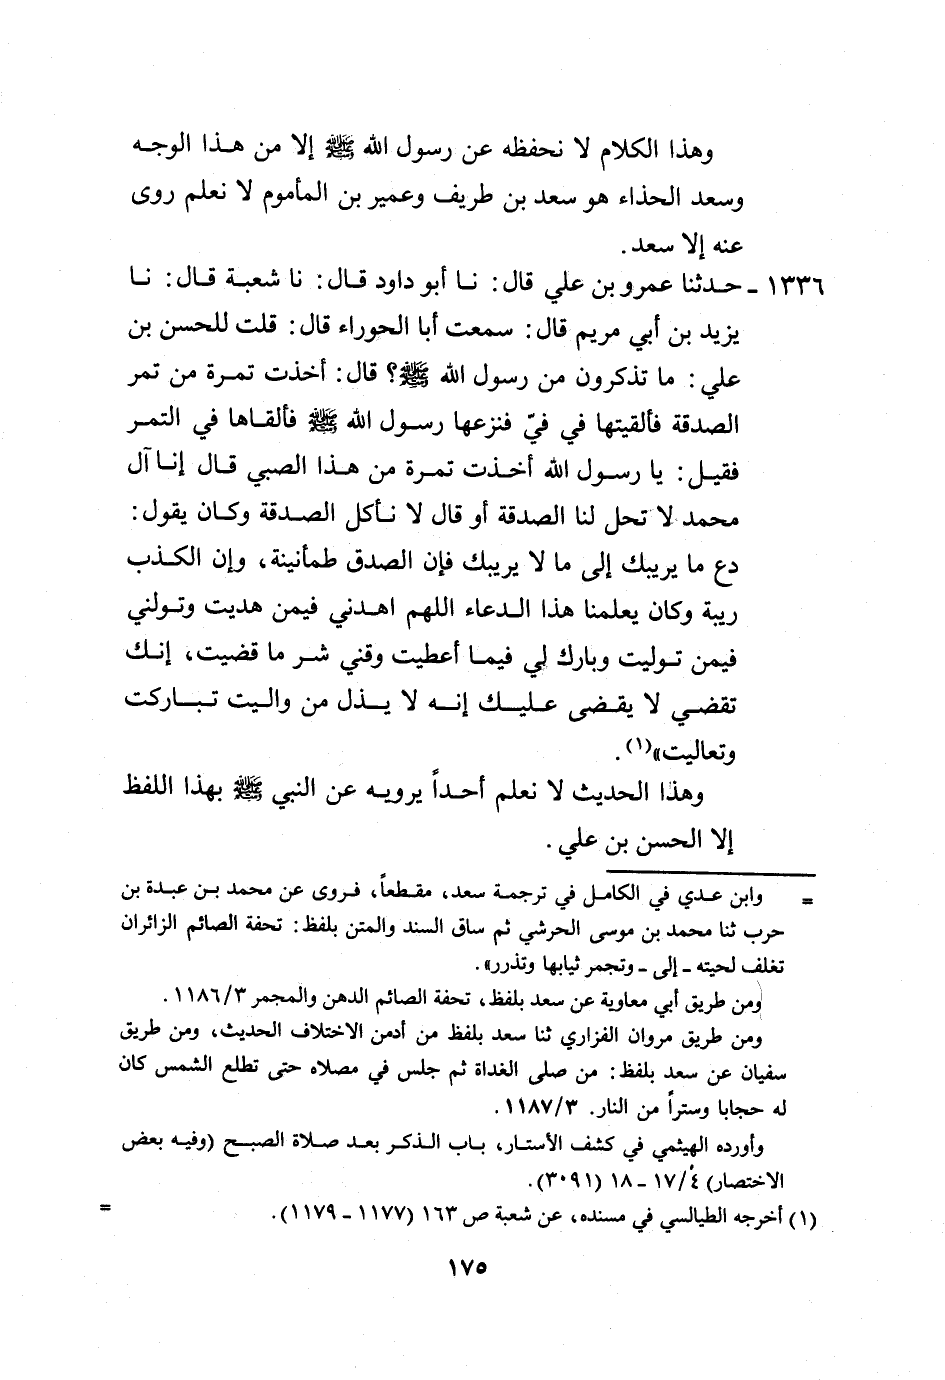 وهذا الكلام لا نحفظه عن رسول الله ﷺ إلا من هذا الوجه
وسعد الحذاء هو سعد بن طريف وعمير بن المأموم لا نعلم روى
عنه إلا سعد .
١٣٣٦ ـ حدثنا عمرو بن علي قال : نا أبو داود قال : نا شعبة قال : نا
يزيد بن أبي مريم قال : سمعت أبا الحوراء قال : قلت للحسن بن
علي : ما تذكرون من رسول الله ﷺ؟ قال : أخذت تمرة من تمر
الصدقة فألقيتها في فيّ فنزعها رسول الله ﷺ فألقاها في التمر
فقيل : يا رسول الله أخذت تمرة من هذا الصبي قال إنا آل
محمد لا تحل لنا الصدقة أو قال لا نأكل الصدقة وكان يقول :
دع ما يريبك إلى ما لا يريبك فإن الصدق طمأنينة ، وإن الكذب
ريبة وكان يعلمنا هذا الدعاء اللهم اهدني فيمن هديت وتولني
فيمن توليت وبارك لي فيما أعطيت وقني شر ما قضيت ، إنك
تقضي لا يقضى عليك إنه لا يذل من واليت تباركت
وتعاليت»(١) .
وهذا الحديث لا نعلم أحداً يرويه عن النبي ﷺ بهذا اللفظ
إلا الحسن بن علي .
= وابن عدي في الكامل في ترجمة سعد ، مقطعاً ، فروى عن محمد بن عبدة بن
حرب ثنا محمد بن موسى الحرشي ثم ساق السند والمتن بلفظ : تحفة الصائم الزائران
تغلف لحيته ـ إلى ـ وتجمر ثيابها وتذرر» .
ومن طريق أبي معاوية عن سعد بلفظ ، تحفة الصائم الدهن والمجمر ١١٨٦/٣ .
ومن طريق مروان الفزاري ثنا سعد بلفظ من أدمن الاختلاف الحديث ، ومن طريق
سفيان عن سعد بلفظ : من صلى الغداة ثم جلس في مصلاه حتى تطلع الشمس كان
له حجابا وستراً من النار . ١١٨٧/٣ .
وأورده الهيثمي في كشف الأستار ، باب الذكر بعد صلاة الصبح (وفيه بعض
الاختصار) ١٧/٤ ـ ١٨ (٣٠٩١) .
(١) أخرجه الطيالسي في مسنده ، عن شعبة ص ١٦٣ (١١٧٧ ـ ١١٧٩) . =
١٧٥